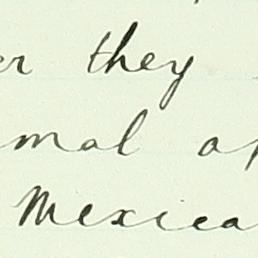 er they
mal of
Mexica